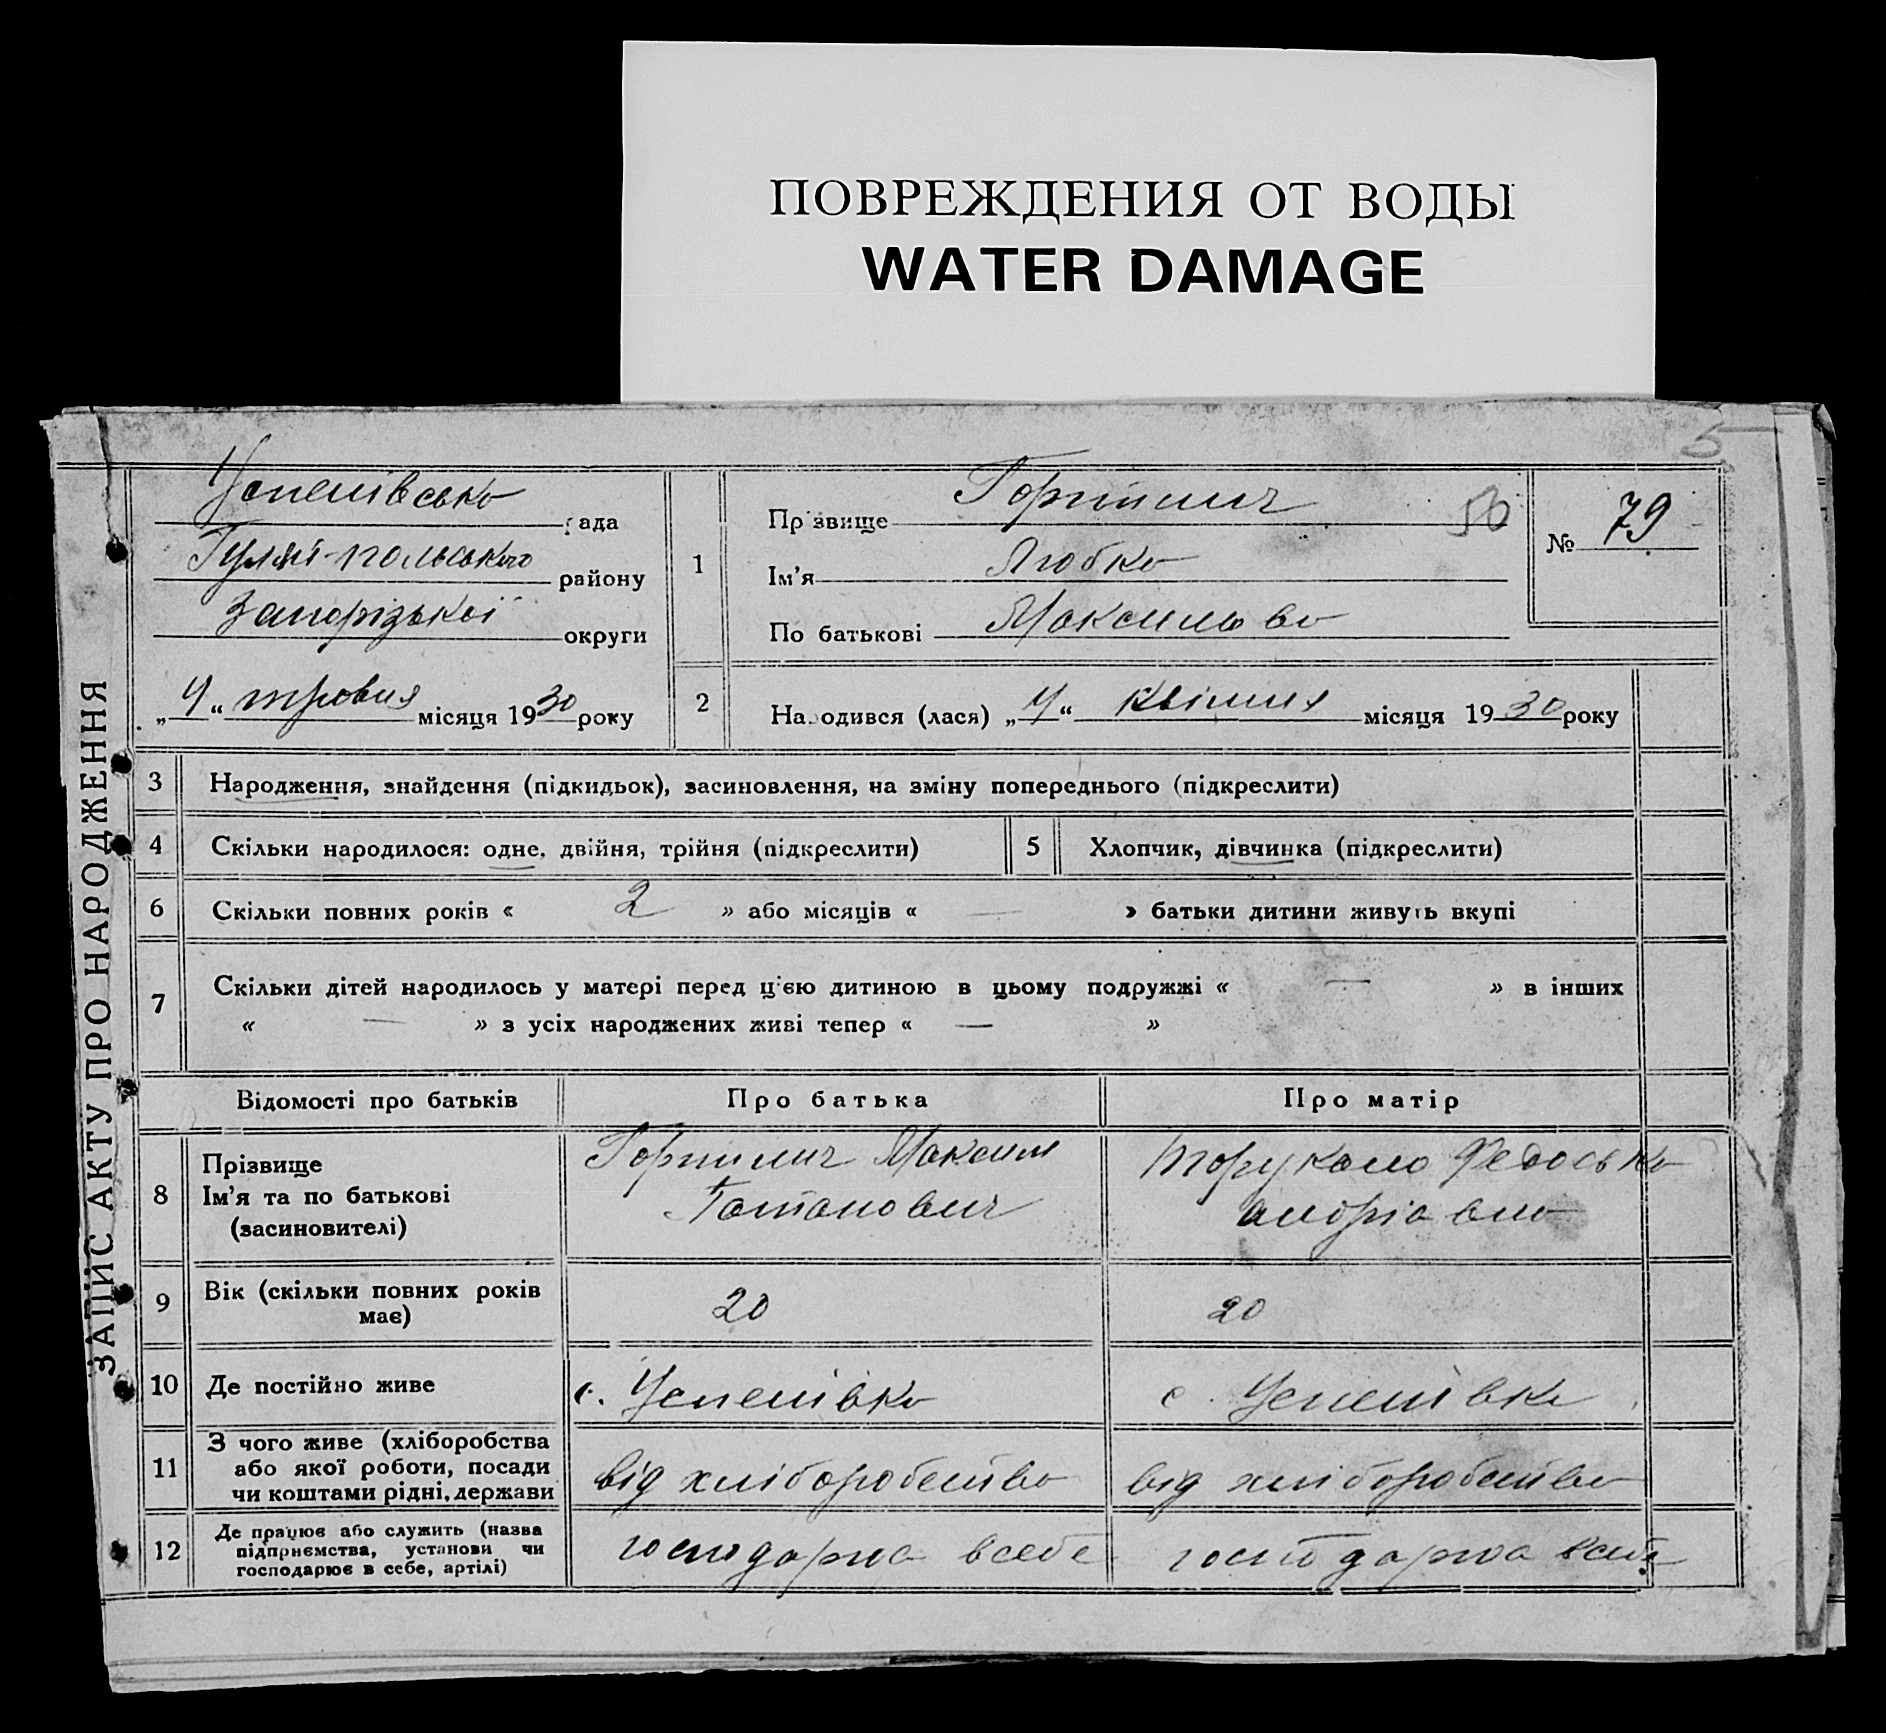 ПОВРЕЖДЕНИЯ ОТ ВОДЫ
WATER DAMAGE
5
ЗАПИС АКТУ ПРО НАРОДЖЕННЯ
Успенівська рада
Гуляй-польського району
Запорізької округи
„4“ травня місяця 1930 року
1
Прізвище Горпинич 50
Ім'я Любка
По батькові Максимова
№ 79
2
Народився (лася) „4“ квітня місяця 1930 року
3 Народження, знайдення (підкидьок), засиновлення, на зміну попереднього (підкреслити)
4 Скільки народилося: одне, двійня, трійня (підкреслити)
5 Хлопчик, дівчинка (підкреслити)
6 Скільки повних років « 2 » або місяців « — » батьки дитини живуть вкупі
7 Скільки дітей народилось у матері перед ц'єю дитиною в цьому подружжі « — » в інших
« — » з усіх народжених живі тепер « — »
Відомості про батьків Про батька Про матір
8 Прізвище
Ім'я та по батькові
(засиновителі)
Горпинич Максим
Федоська
Андріавна
9 Вік (скільки повних років
має)
20 20
10 Де постійно живе с. Успенівка с. Успенівка
11 З чого живе (хліборобства
або якої роботи, посади
чи коштами рідні, держави
від хліборобства від хліборобства
12 Де працює або служить (назва
підприємства, установи чи
господарює в себе, артілі)
господарює всебе господарює всебе